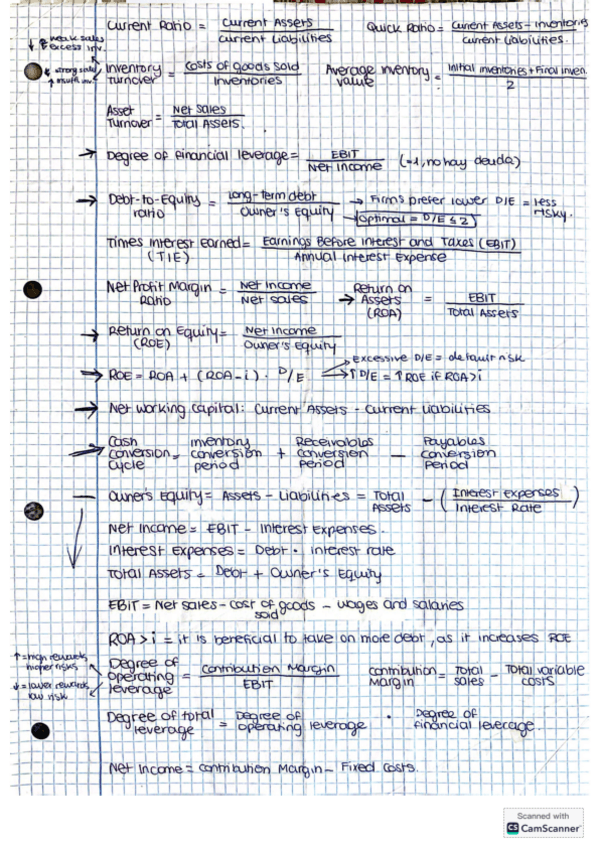 Current Ratio = Current Assets / Current Liabilities    Quick Ratio = Current Assets - Inventories / Current Liabilities.
↓ weak sales
excess inv.
Inventory Turnover = Costs of goods sold / Inventories    Average inventory value = Initial inventories + Final inven. / 2
Asset Turnover = Net Sales / Total Assets.
→ Degree of financial leverage = EBIT / Net Income (=1, no hay deuda)
→ Debt-to-Equity ratio = Long-term debt / Owner's Equity → Firms prefer lower D/E = less risky.
Optimal = D/E ≤ 2
Times Interest earned = Earnings Before Interest and Taxes (EBIT) / Annual Interest Expense
(TIE)
Net Profit Margin Ratio = Net Income / Net sales    → Return on Assets (ROA) = EBIT / Total Assets
→ Return on Equity = Net Income / Owner's Equity
(ROE)
→ ROE = ROA + (ROA - i) · D/E
excessive D/E = default risk
↑ D/E = ↑ ROE if ROA > i
→ Net working capital: Current Assets - Current Liabilities
Cash conversion cycle = Inventory conversion period + Receivables conversion Period - Payables conversion Period
Owner's Equity = Assets - Liabilities = Total Assets - (Interest expenses / Interest Rate)
Net Income = EBIT - Interest Expenses.
Interest Expenses = Debt · interest rate
Total Assets = Debt + Owner's Equity
EBIT = Net sales - cost of goods sold - wages and salaries
ROA > i = it is beneficial to take on more debt, as it increases ROE
↑ = high rewards, higher risks
↓ = lower rewards, low risk
Degree of operating leverage = Contribution Margin / EBIT    contribution Margin = Total sales - Total variable costs
Degree of total leverage = Degree of operating leverage · Degree of financial leverage.
Net Income = Contribution Margin - Fixed Costs.
Scanned with
CS CamScanner